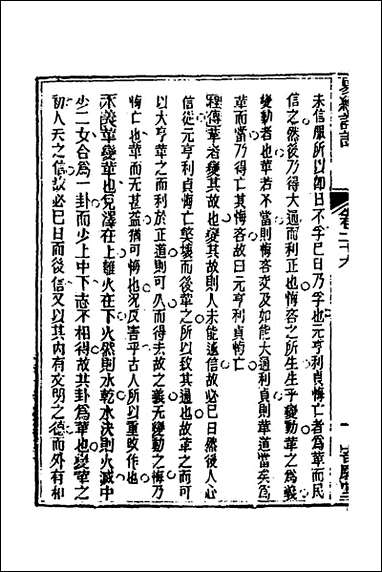 未信服所以即日不孚巳日乃孚也元亨利貞悔亡者為革而民
信之然後乃得大通而利正也悔吝之所生生乎變動革之為義
變動者也革若不當則悔吝交及如能大通利貞則革道當矣為
革而當乃得亡其悔吝故曰元亨利貞悔亡
程傳革者變其故也變其故則人未能遽信故必巳日然後人心
信從元亨利貞悔亡弊壞而後革之所以致其通也故革之而可
以大亨革之而利於正道則可久而得去故之義无變動之悔乃
悔亡也革而无甚益猶可悔也况反害乎古人所以重改作也
本義革變革也兌澤在上離火在下火然則水乾水決則火滅中
少二女合為一卦而少上中下志不相得故其卦為革也變革之
初人未之信故必巳日而後信又以其內有文明之德而外有和
卷二十六